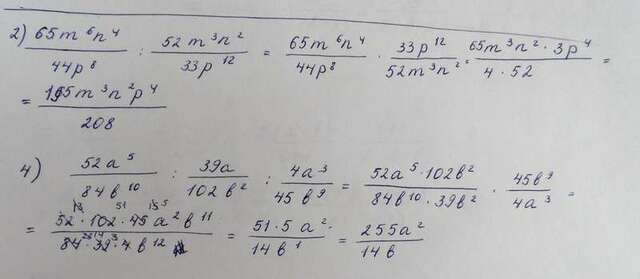 2) \frac{65m^6n^4}{44p^8} : \frac{52m^3n^2}{33p^{12}} = \frac{65m^6n^4}{44p^8} \cdot \frac{33p^{12}}{52m^3n^2} = \frac{65m^3n^2 \cdot 3p^4}{4 \cdot 52} =
= \frac{195m^3n^2p^4}{208}
4) \frac{52a^5}{84b^{10}} : \frac{39a}{102b^2} : \frac{4a^3}{45b^9} = \frac{52a^5 \cdot 102b^2}{84b^{10} \cdot 39b^2} \cdot \frac{45b^9}{4a^3} =
= \frac{52 \cdot 102 \cdot 45a^2b^{11}}{84 \cdot 39 \cdot 4b^{12}} = \frac{51 \cdot 5a^2}{14b^1} = \frac{255a^2}{14b}